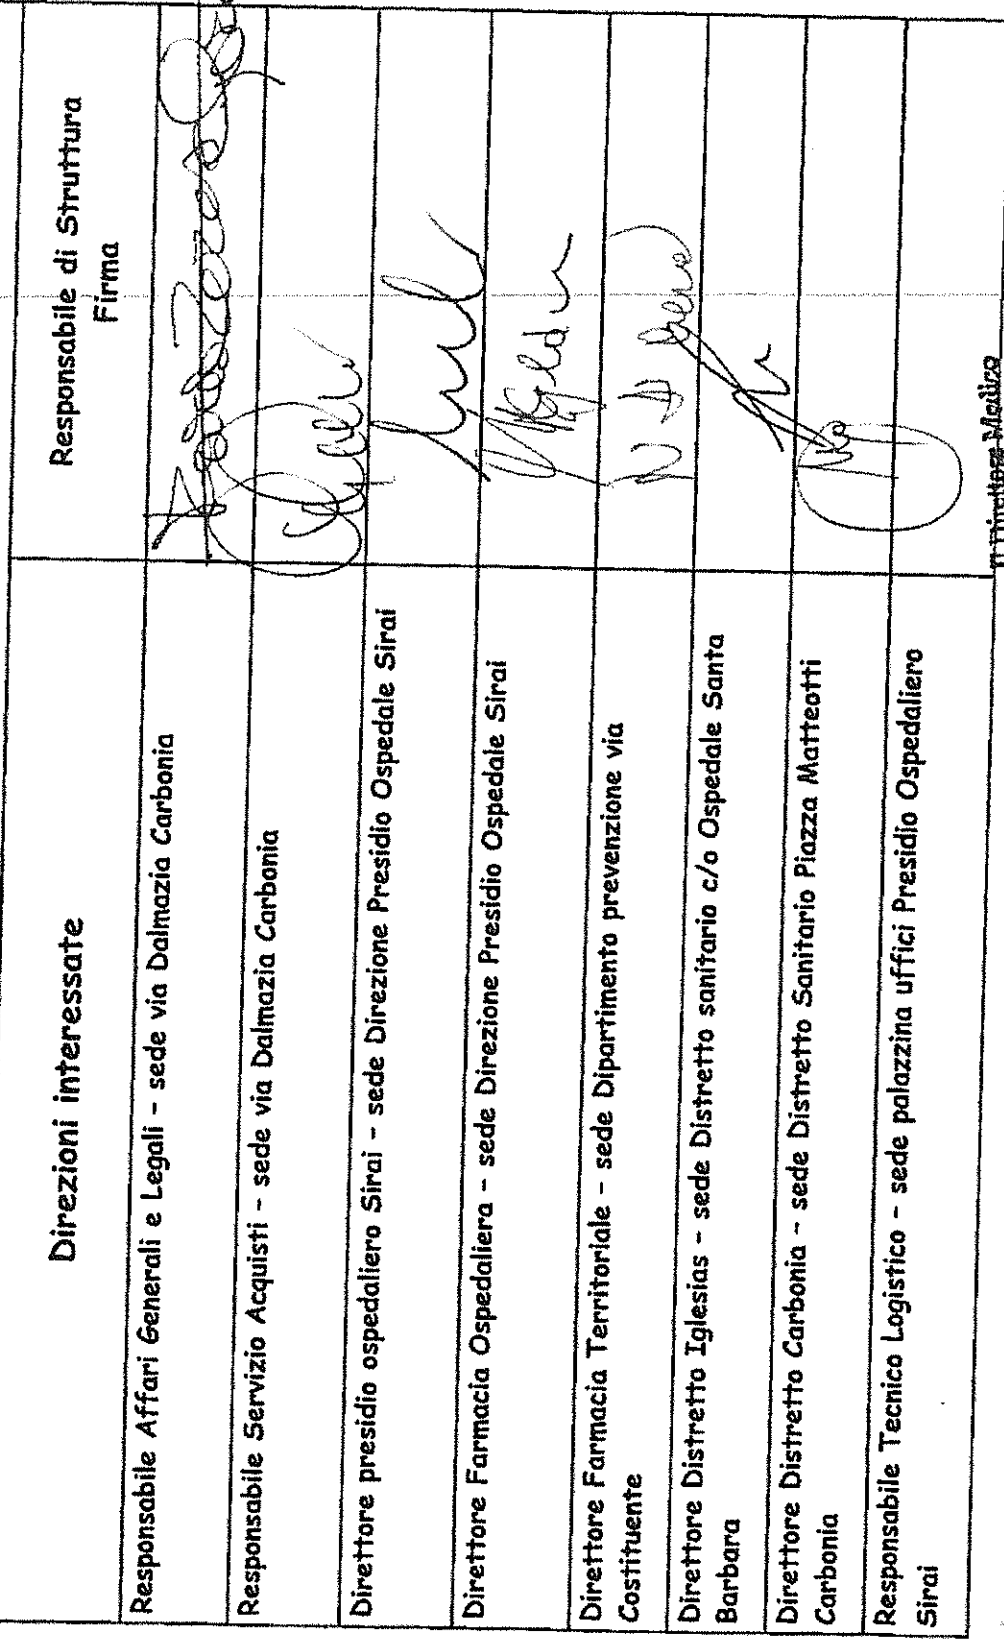 Direzioni interessate
Responsabile di Struttura
Firma
Responsabile Affari Generali e Legali - sede via Dalmazia Carbonia
Responsabile Servizio Acquisti - sede via Dalmazia Carbonia
Direttore presidio ospedaliero Sirai - sede Direzione Presidio Ospedale Sirai
Direttore Farmacia Ospedaliera - sede Direzione Presidio Ospedale Sirai
Direttore Farmacia Territoriale - sede Dipartimento prevenzione via
Costituente
Direttore Distretto Iglesias - sede Distretto sanitario c/o Ospedale Santa
Barbara
Direttore Distretto Carbonia - sede Distretto Sanitario Piazza Matteotti
Carbonia
Responsabile Tecnico Logistico - sede palazzina uffici Presidio Ospedaliero
Sirai
Direttore Medico